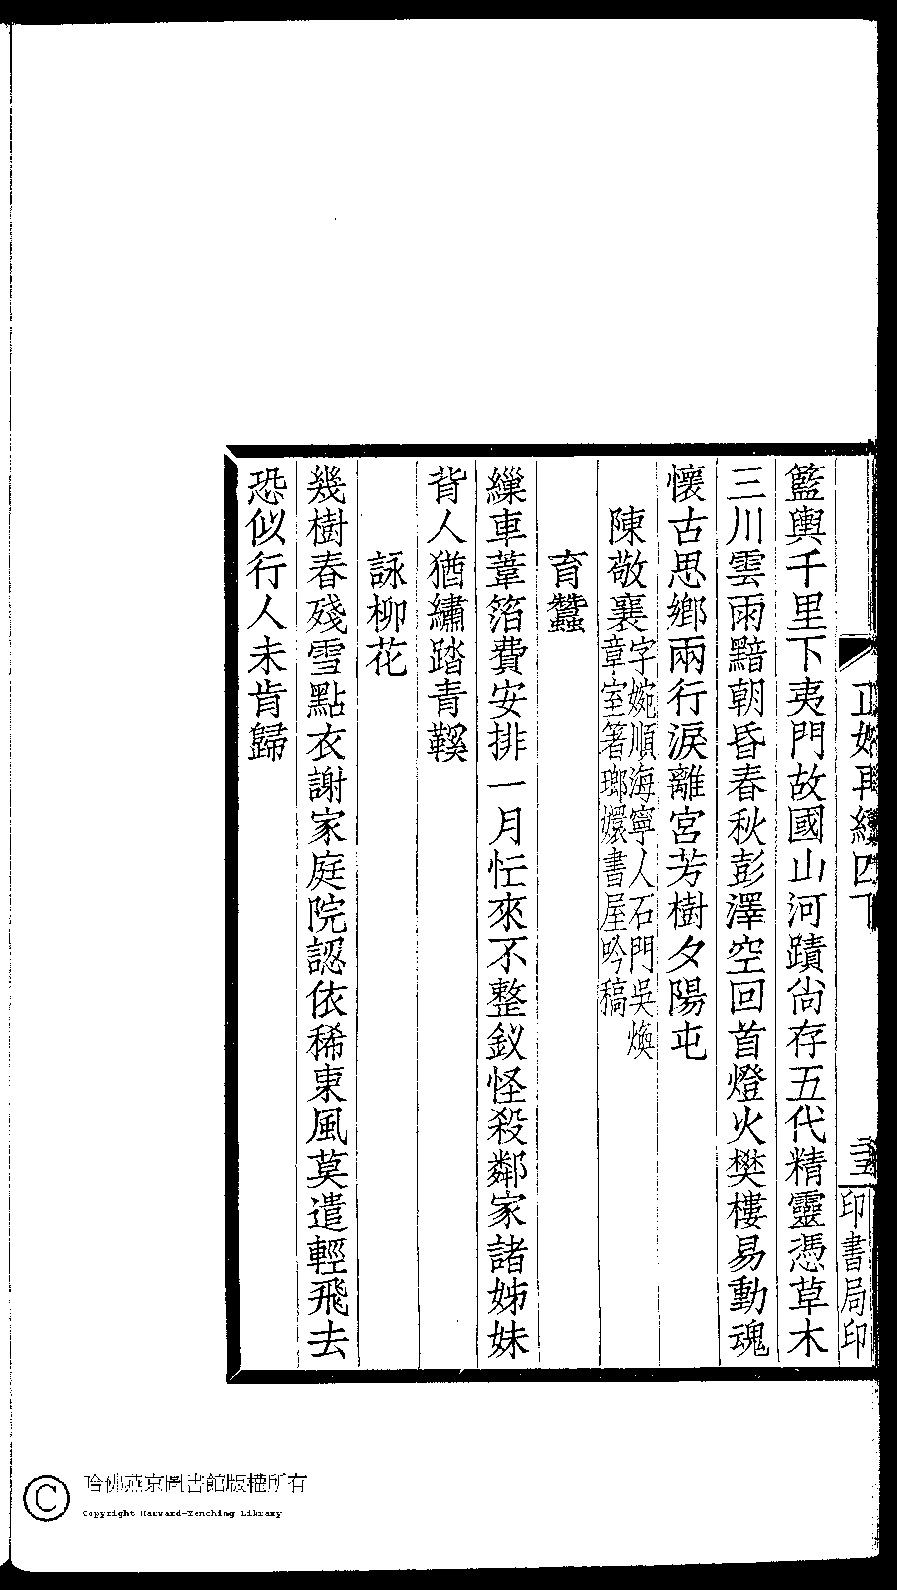 正始再續四下
三五
印書局印
籃輿千里下夷門故國山河蹟尙存五代精靈憑草木
三川雲雨黯朝昏春秋彭澤空回首燈火樊樓易動魂
懷古思鄉兩行淚離宮芳樹夕陽屯
陳敬襄字婉順海寧人石門吳煥
章室箸瑯嬛書屋吟稿
育蠶
繅車葦箔費安排一月忙來不整釵怪殺鄰家諸姊妹
背人猶繡踏青鞵
詠柳花
幾樹春殘雪點衣謝家庭院認依稀東風莫遣輕飛去
恐似行人未肯歸
哈佛燕京圖書館版權所有
Copyright Harvard-Yenching Library